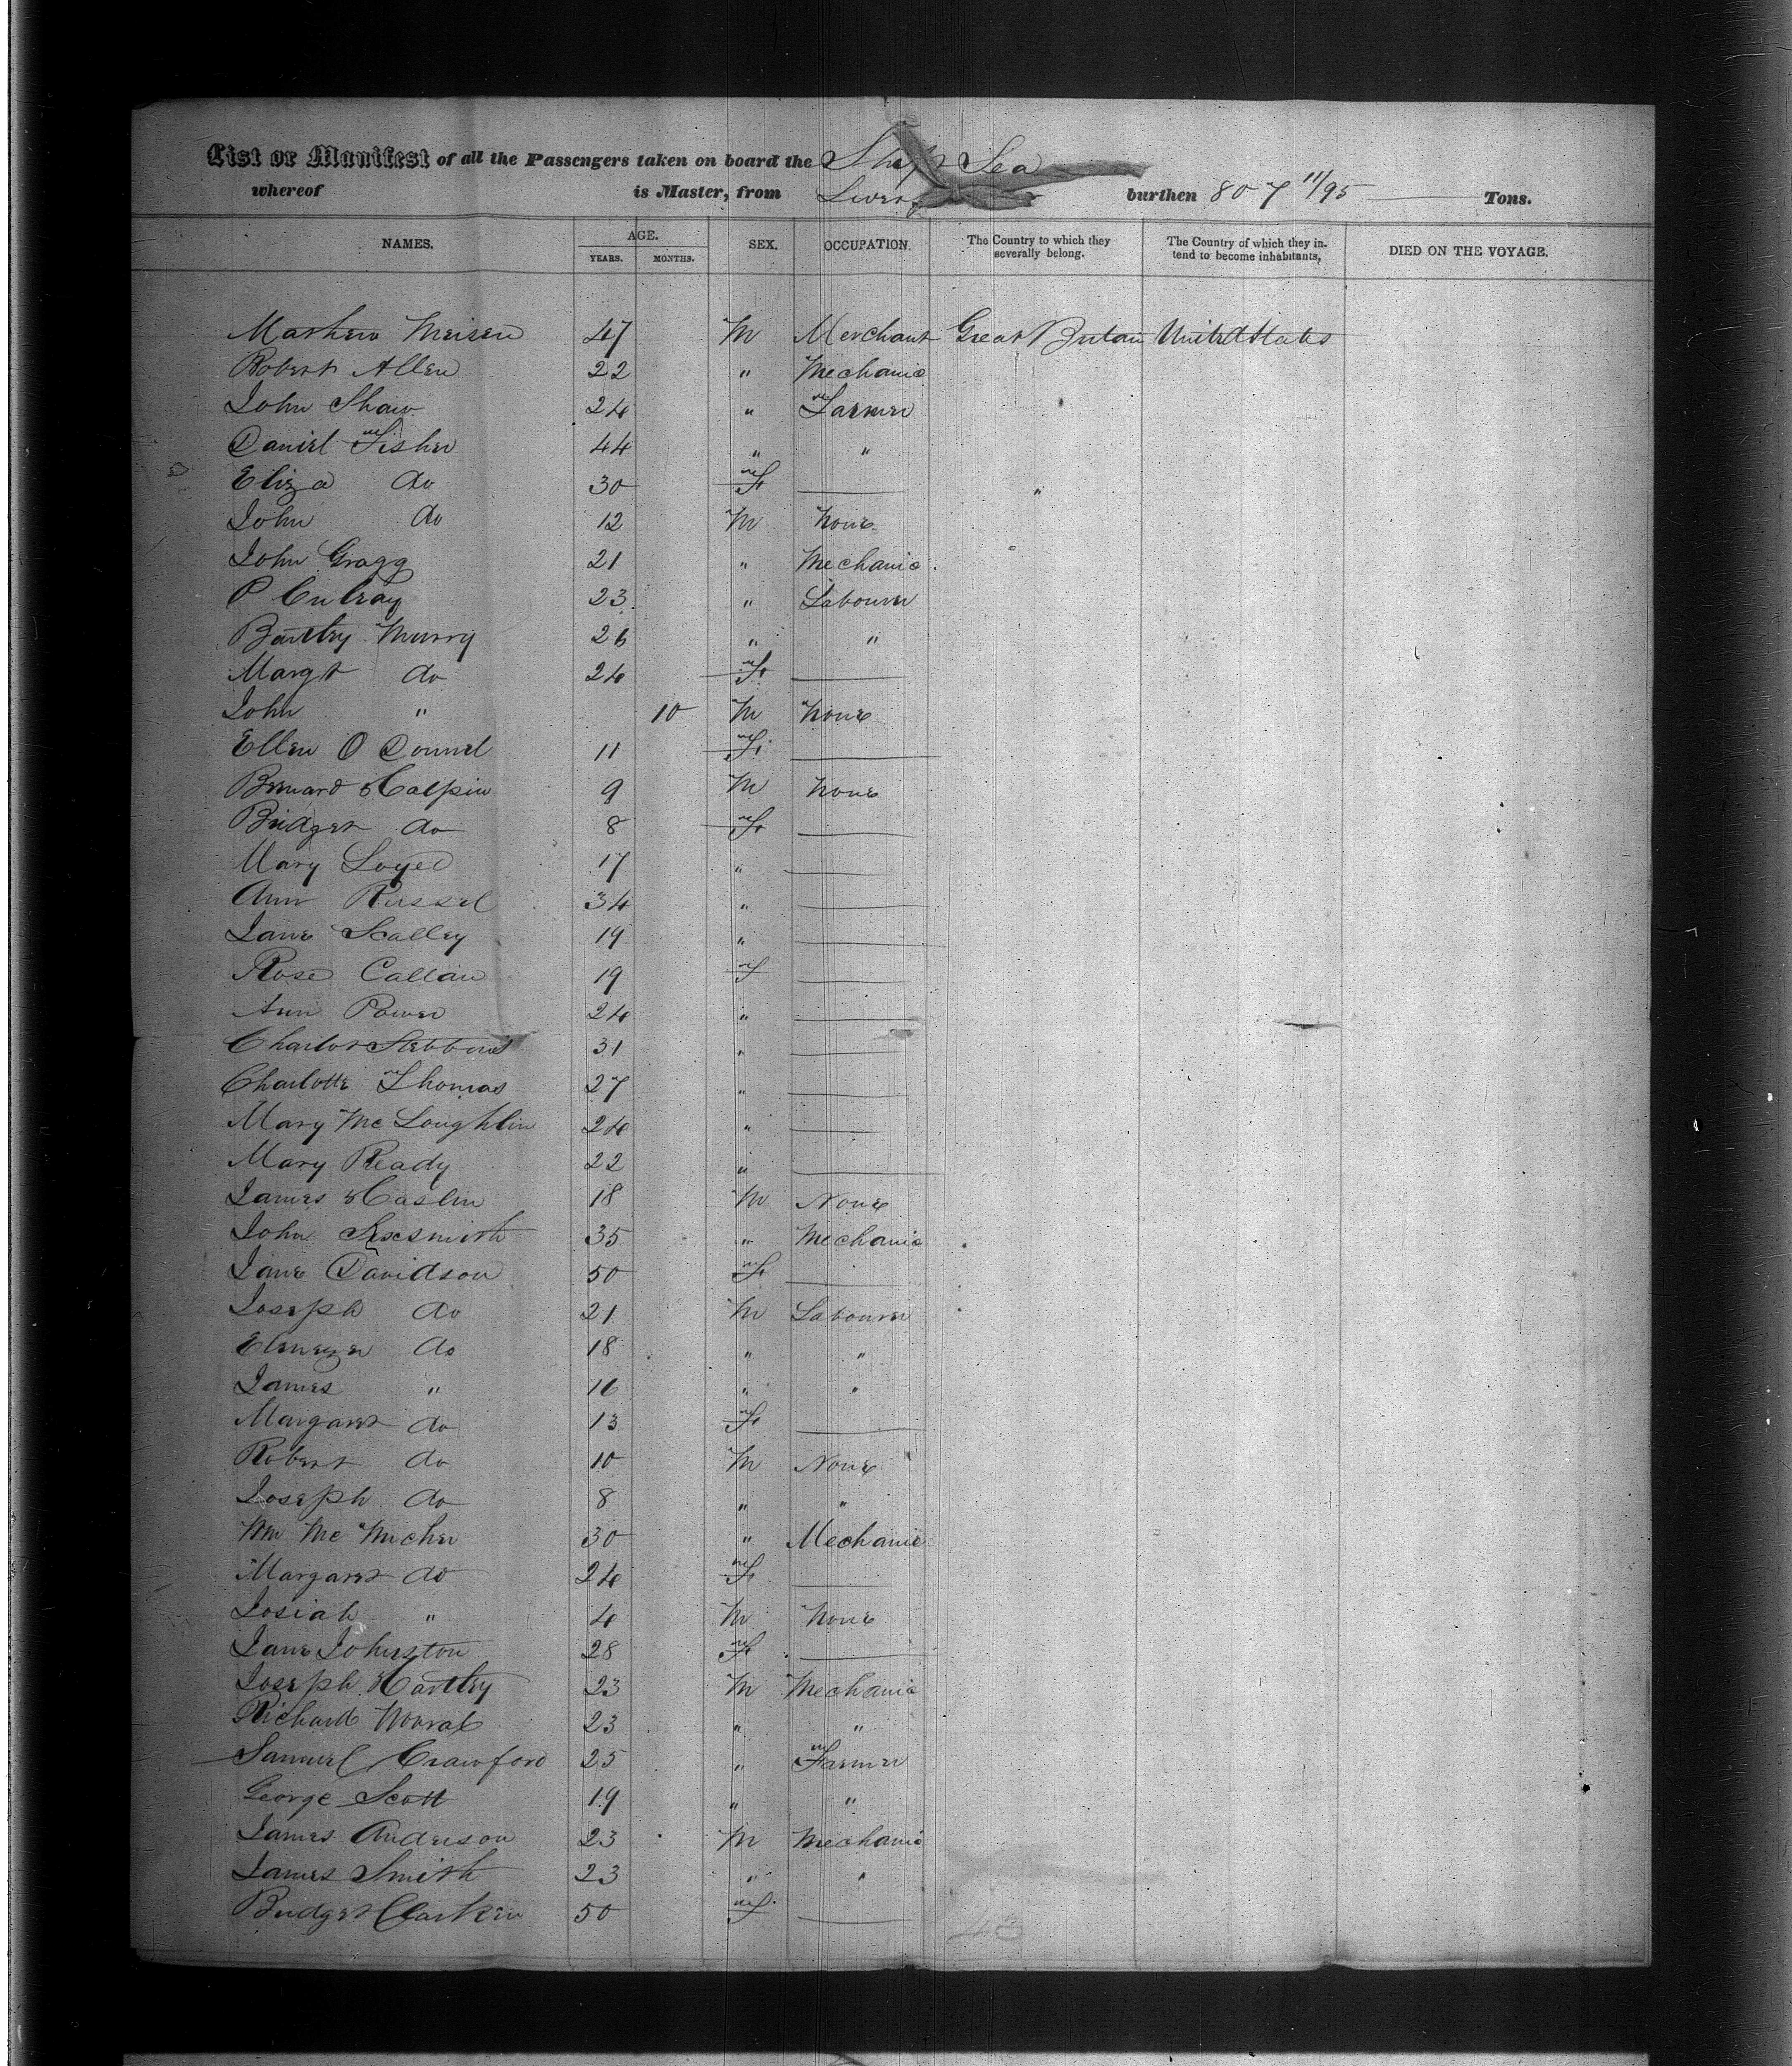 List or Manifest of all the Passengers taken on board the Ship Sea
whereof is Master, from burthen 807 11/95 Tons.
NAMES. AGE. YEARS. MONTHS. SEX. OCCUPATION. The Country to which they severally belong. The Country of which they intend to become inhabitants, DIED ON THE VOYAGE.
Mathew 47 M Merchant Great Britain United States
Robert Allen 22 " Mechanic
John Shaw 24 " Farmer
Daniel Fisher 44 " "
Eliza do 30 F
John do 12 M None
John Gragg 21 " Mechanic
P 23 " Labourer
Bartley Murry 26 " "
Margt do 24 F
John " 10 M None
Ellen O Donnel 11 F
Bernard Halpin 9 M None
Bridget do 8 F
Mary 17 "
Ann Russel 34 "
Jane Scalley 19 "
Rose Callan 19 F
Ann Power 24 "
Charlot Stebbins 31 "
Charlotte Thomas 27 "
Mary Mc Loughlin 24 "
Mary Ready 22 "
James Haslin 18 M None
John Sixsmith 35 " Mechanic
Jane Davidson 50 F
Joseph do 21 M Labourer
Ebenezer do 18 " "
James " 16 " "
Margaret do 13 F
Robert do 10 M None
Joseph do 8 " "
Wm Mc 30 " Mechanic
Margaret do 24 F
Josiah " 4 M None
Jane Johnston 28 F
Joseph Hartley 23 M Mechanic
Richard Worral 23 " "
Samuel Crawford 25 " Farmer
George Scott 19 " "
James Anderson 23 M Mechanic
James Smith 23 " "
Bridget 50 F
43